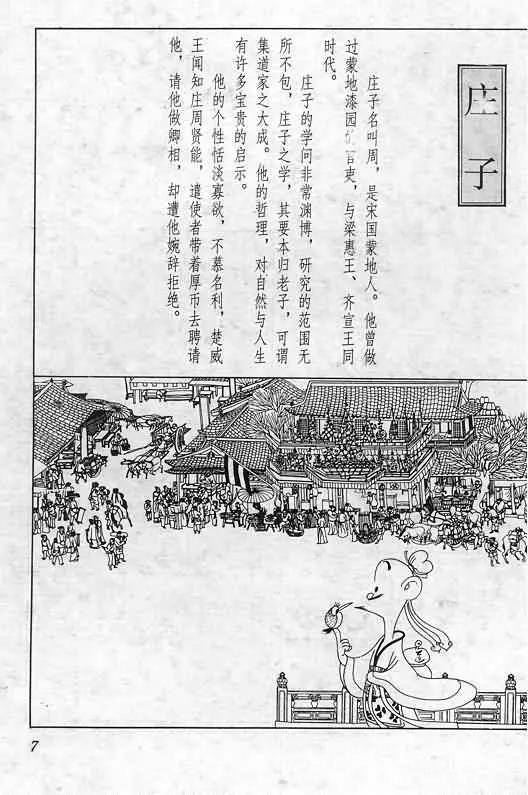 庄子
庄子名叫周，是宋国蒙地人。他曾做
过蒙地漆园 官吏，与梁惠王、齐宣王同
时代。
庄子的学问非常渊博，研究的范围无
所不包，庄子之学，其要本归老子，可谓
集道家之大成。他的哲理，对自然与人生
有许多宝贵的启示。
他的个性恬淡寡欲，不慕名利，楚威
王闻知庄周贤能，遣使者带着厚币去聘请
他，请他做卿相，却遭他婉辞拒绝。
7